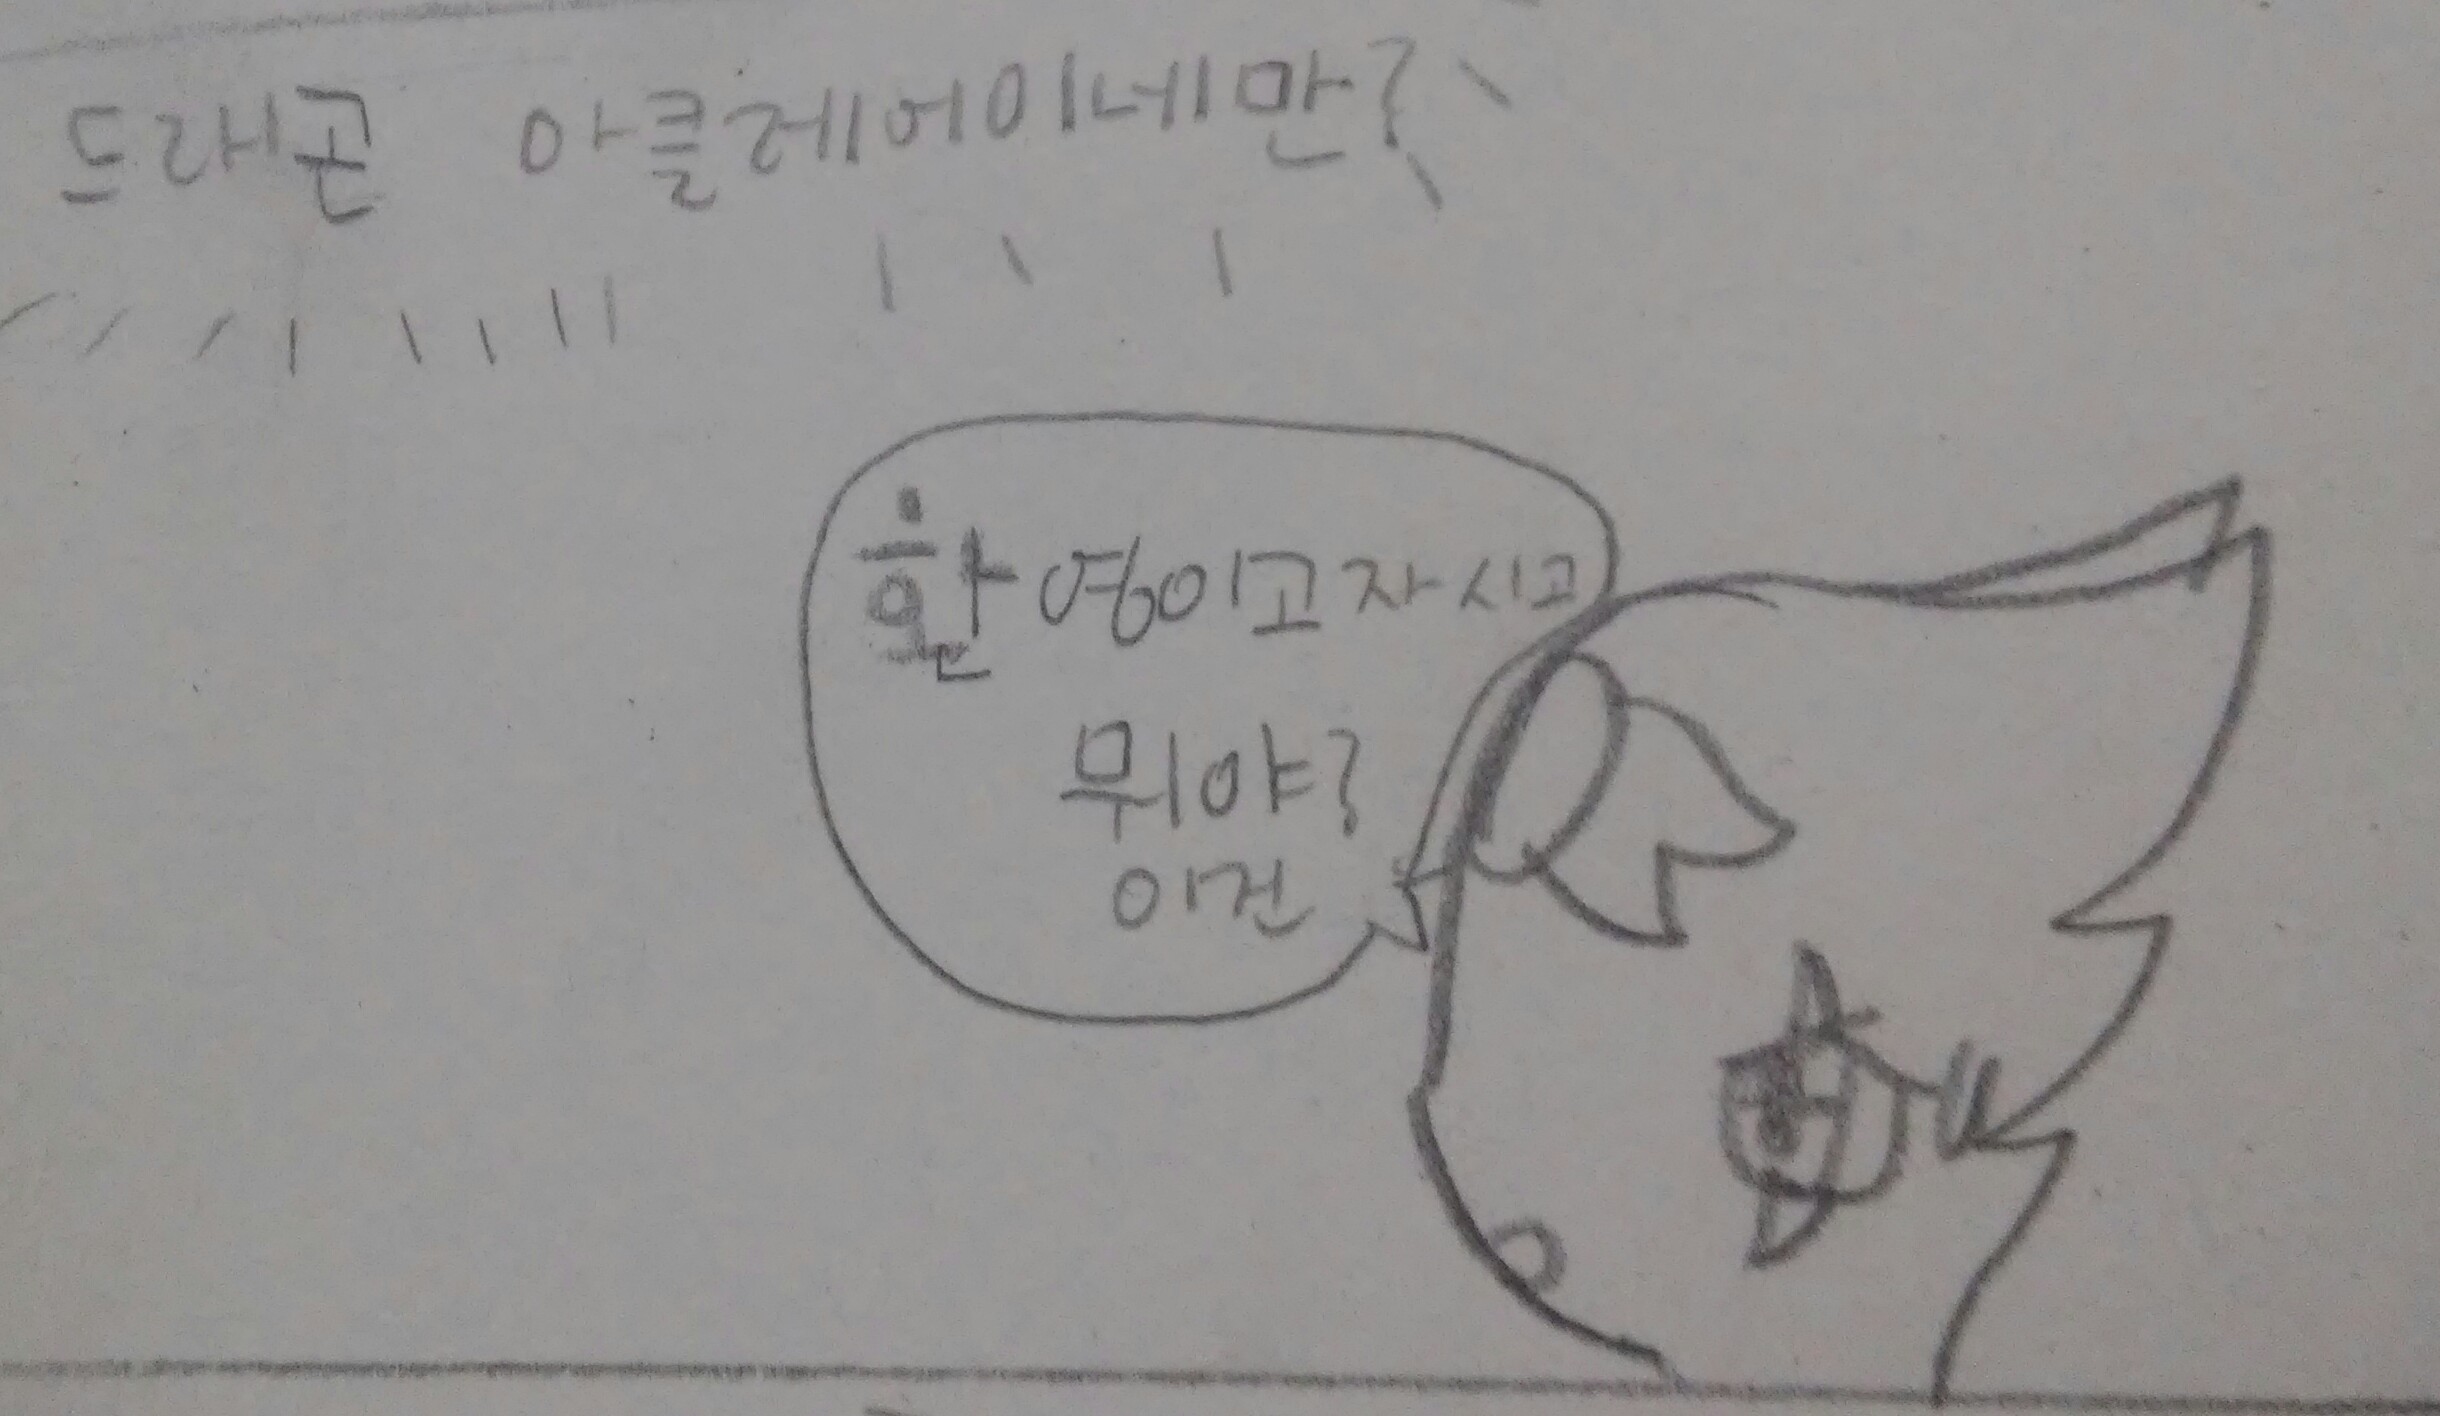 드래곤 아클레어이네만?
환영이고자시고
뭐야?
이건